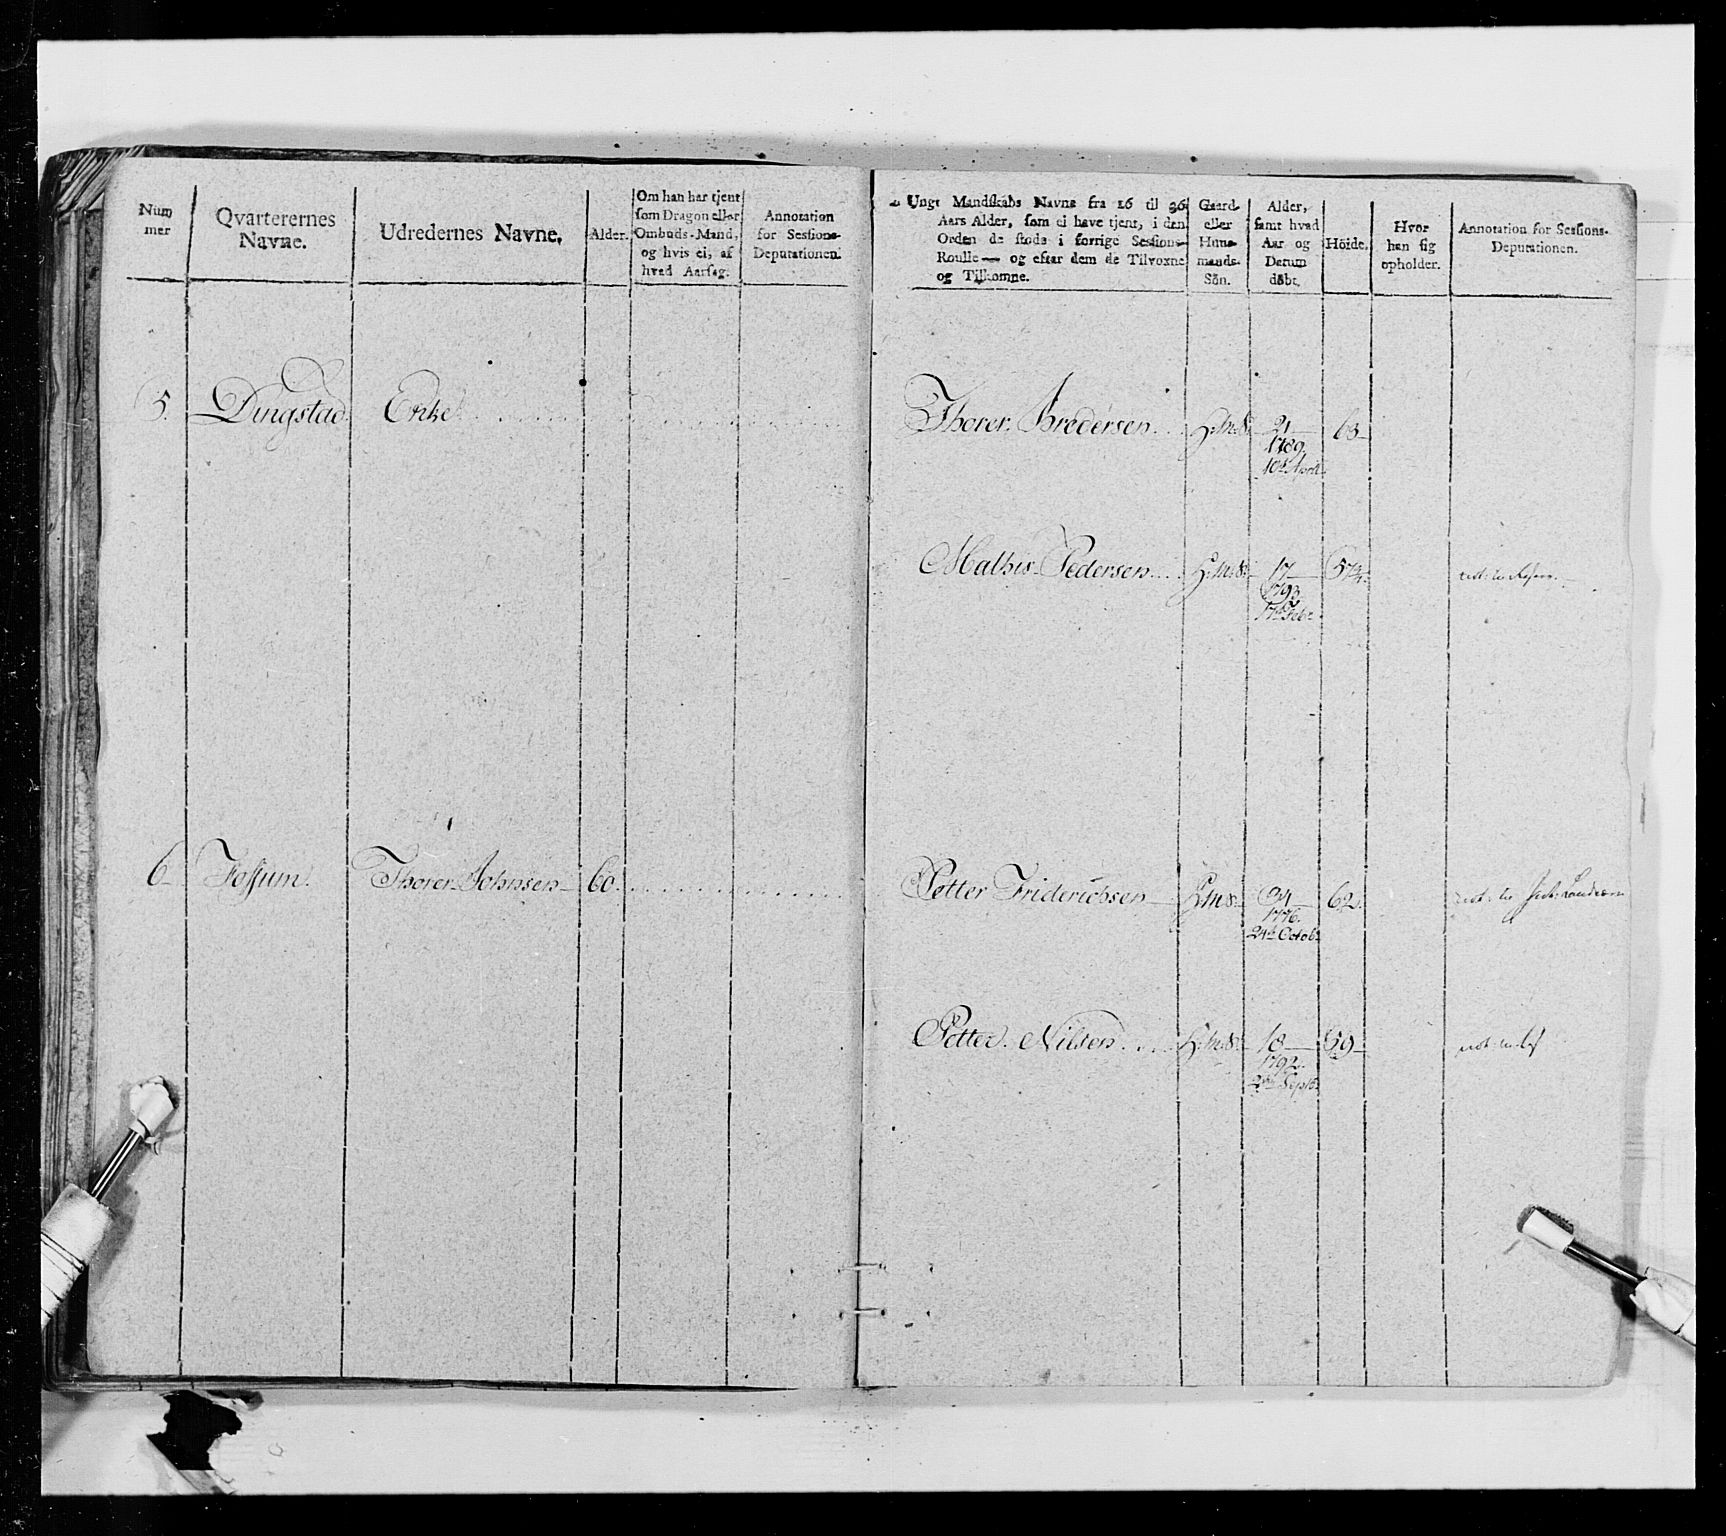 Num
mer
Qvarterernes
Navne.
Udredernes Navne.
Alder.
Om han har tjent
som Dragon eller
Ombuds-Mand,
og hvis ei, af
hvad Aarsag.
Annotation
for Sessions-
Deputationen.
Ungt Mandskabs Navne fra 16 til 36
Aars Alder, som ei have tjent, i den
Orden de stode i forrige Sessions-
Roulle — og efter dem de Tilvoxne
og Tilkomne.
Gaard-
eller
Huus-
mands-
Sön.
Alder,
samt hvad
Aar og
Datum
döbt.
Höide.
Hvor
han sig
opholder.
Annotation for Sessions-
Deputationen.
5. Dingstad. Enke
Thorer Bredersen. H:m:S. 21 63
1789.
10de April
Mathis Pedersen H:m:S. 17 57¾
1793.
17de Febr.
6 Fossum. Thorer Johnsen 60.
Petter Friderichsen H:m:S. 34 62.
1776.
24de Octobr.
Petter Nilsen. H:m:S. 18 59
1792.
Septbr.